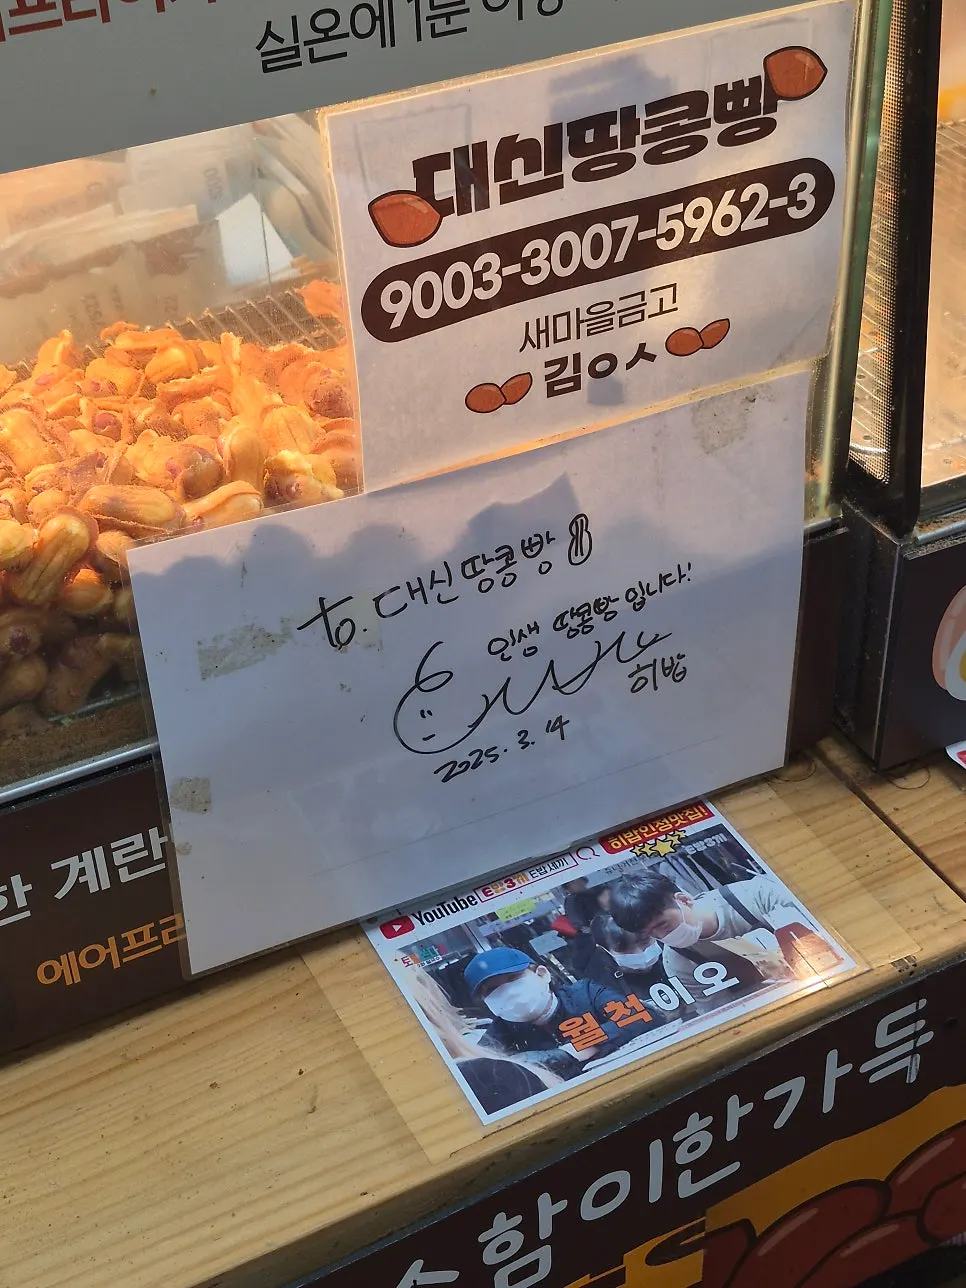 실온에 1분
대신땅콩빵
9003-3007-5962-3
새마을금고
김ㅇㅅ
to. 대신땅콩빵
인생 땅콩빵 입니다!
히밥
2025. 3. 14
한 계란
에어프
히밥인정맛집!
YouTube
월척이오
함이한가득